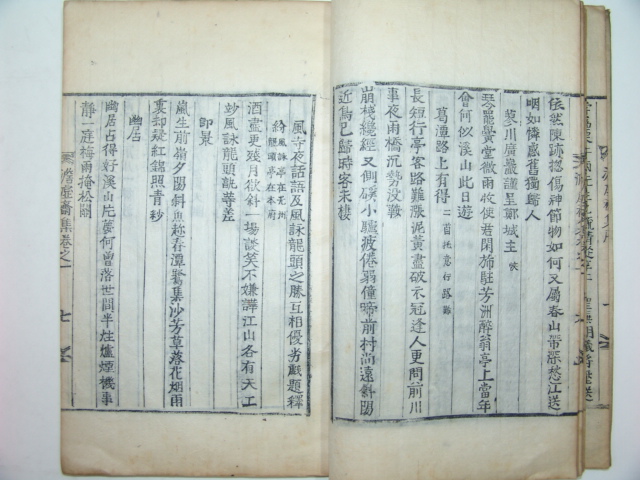 依然陳跡揔傷神節物如何又屬春山帶深愁江送
咽如憐感舊獨歸人
蔡川廣巖謹呈鄭城主
琴罷黌堂微雨收使君閑旆駐芳洲醉翁亭上當年
會何似溪山此日遊
葛潭路上有得 二首托意行路難
長短行亭客路難漲泥黄盡破不冠逢人更問前川
事夜雨橋沉勢沒鞍
崩棧纔經又側磎小驢疲倦弱僮啼前村尚遠斜陽
近鳥已歸時客未棲
風寺夜話語及風詠龍頭之勝互相優劣戱題釋
紛 風詠亭在光州龍頭亭在本府
酒盡更殘月欲斜一場談笑不嫌譁江山各有天工
妙風詠龍頭說等差
即景
嵐生前嶺夕陽斜魚躍春潭鷺集沙芳草落花烟雨
裏却疑紅錦照青紗
幽居
幽居占得好溪山片夢何曾落世間半炷爐煙機事
靜一庭梅雨掩松關
澹虛齋集卷之一
七